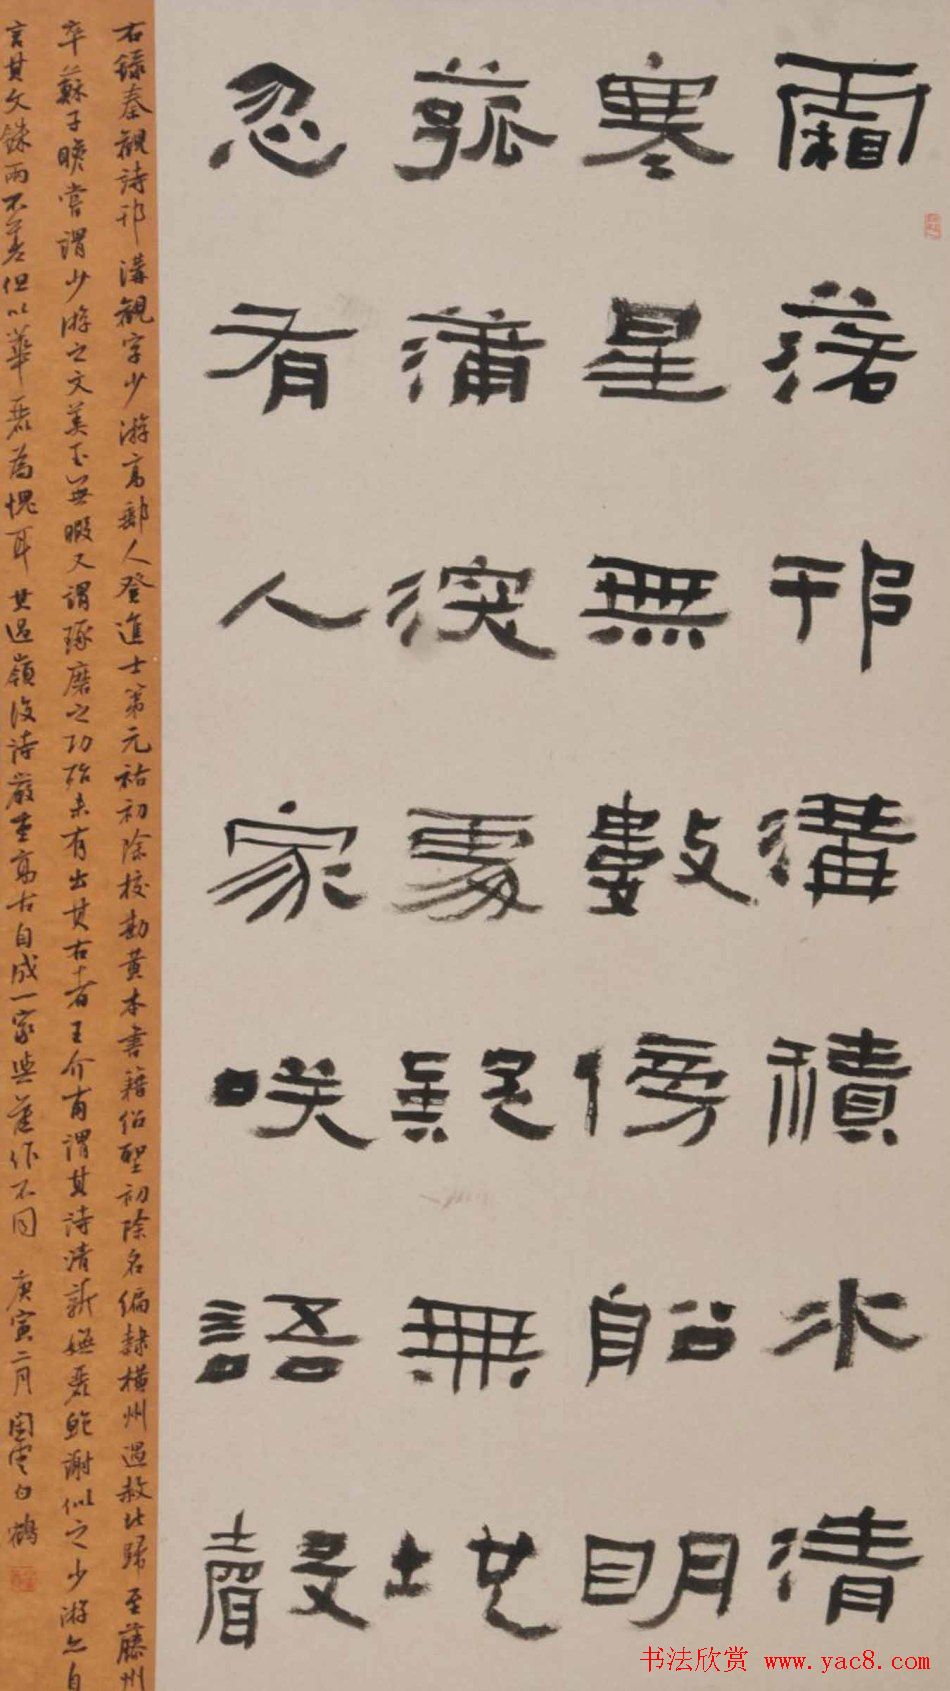 霜落邗溝積水清
寒星無數傍船明
菰蒲深處疑無地
忽有人家咲語聲
右錄秦觀詩邗溝觀字少游高郵人登進士第元祐初除校勘黃本書籍紹聖初除名編隸橫州遇赦北歸至藤州
卒蘇子瞻嘗謂少游之文美玉無瑕又謂琢磨之功殆未有出其右者王介甫謂其詩清新嫵麗鮑謝似之少游亦自
言其文銖兩不差但以華麗為愧耳其過嶺後詩嚴重高古自成一家與舊作不同 庚寅二月 雲白鶴
书法欣赏 www.yac8.com